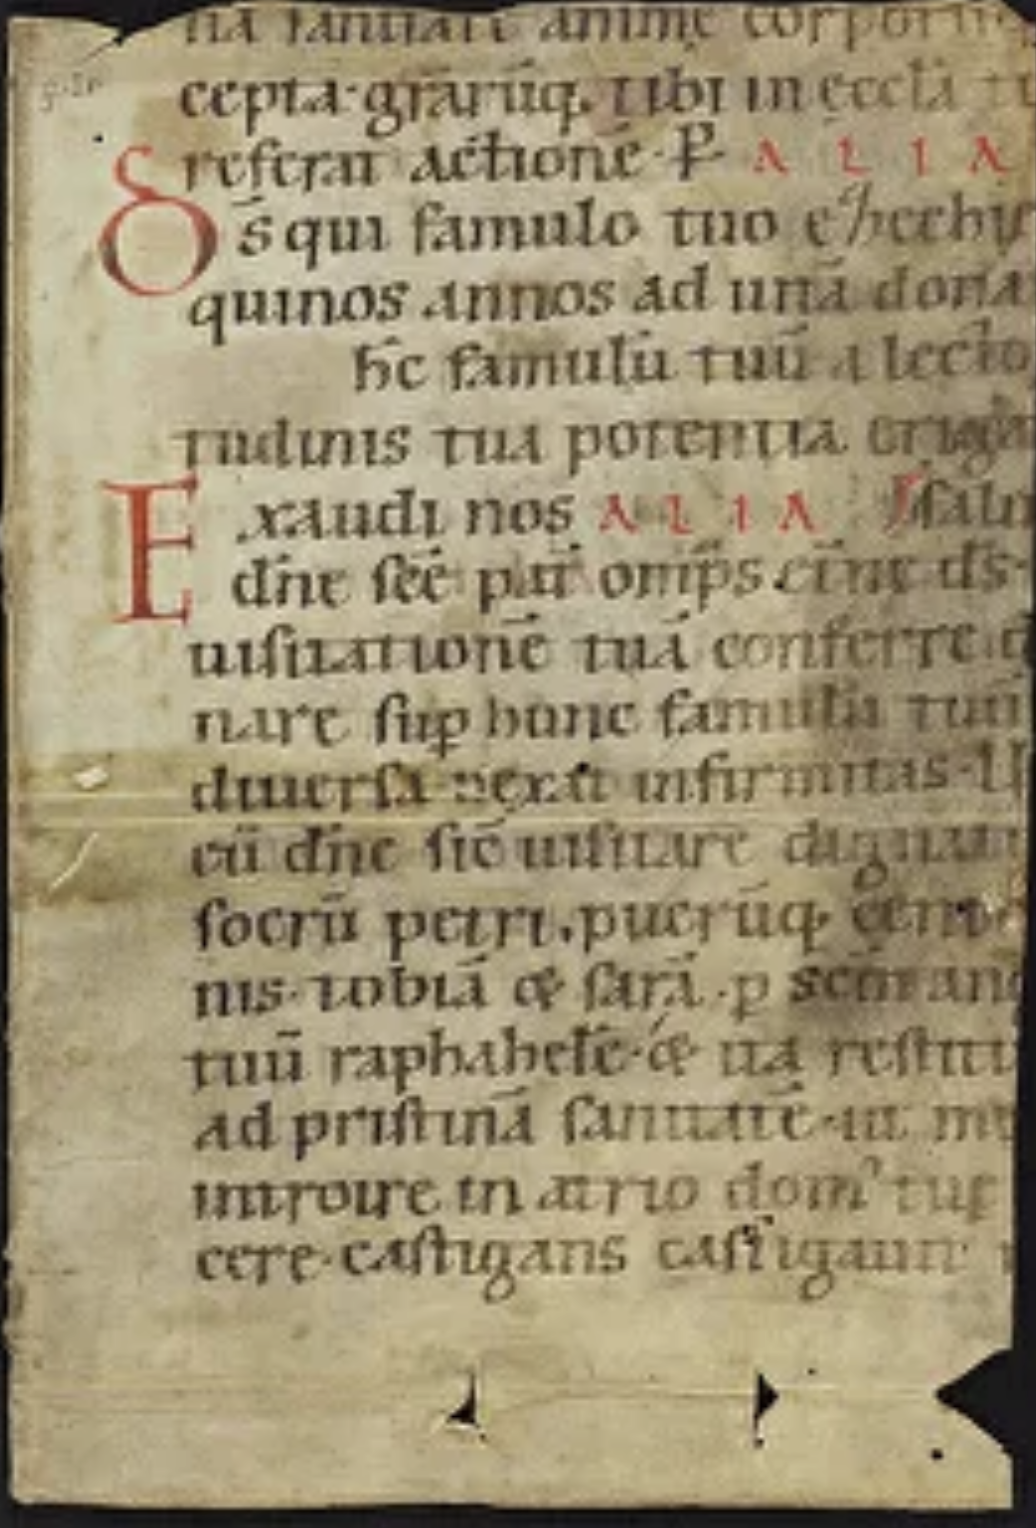 na sanitate anime corpori
cepta·grarūq. tibi in eccła tu
referat actionē·P̄ ALIA
Ds̄ qui famulo tuo ezechię
quinos annos ad uitā dona
hc̄ famulū tuū a lecto
tudinis tua potentia eriga
Exaudi nos ALIA
dn̄e sc̄e pat̄ omp̄s et̄ne ds̄·
uisitationē tuā conferre d
nare sup hunc famulū tuū
diuersa uexat infirmitas·U
eū dn̄e sic uisitare dignar
socrū petri, puerūq·
nis·tobiā & sarā·p sc̄m ang
tuū raphahelē·& ita restitu
ad pristinā sanitatē·ut m
introire in atrio dom' tuę
cere·castigans castigauit